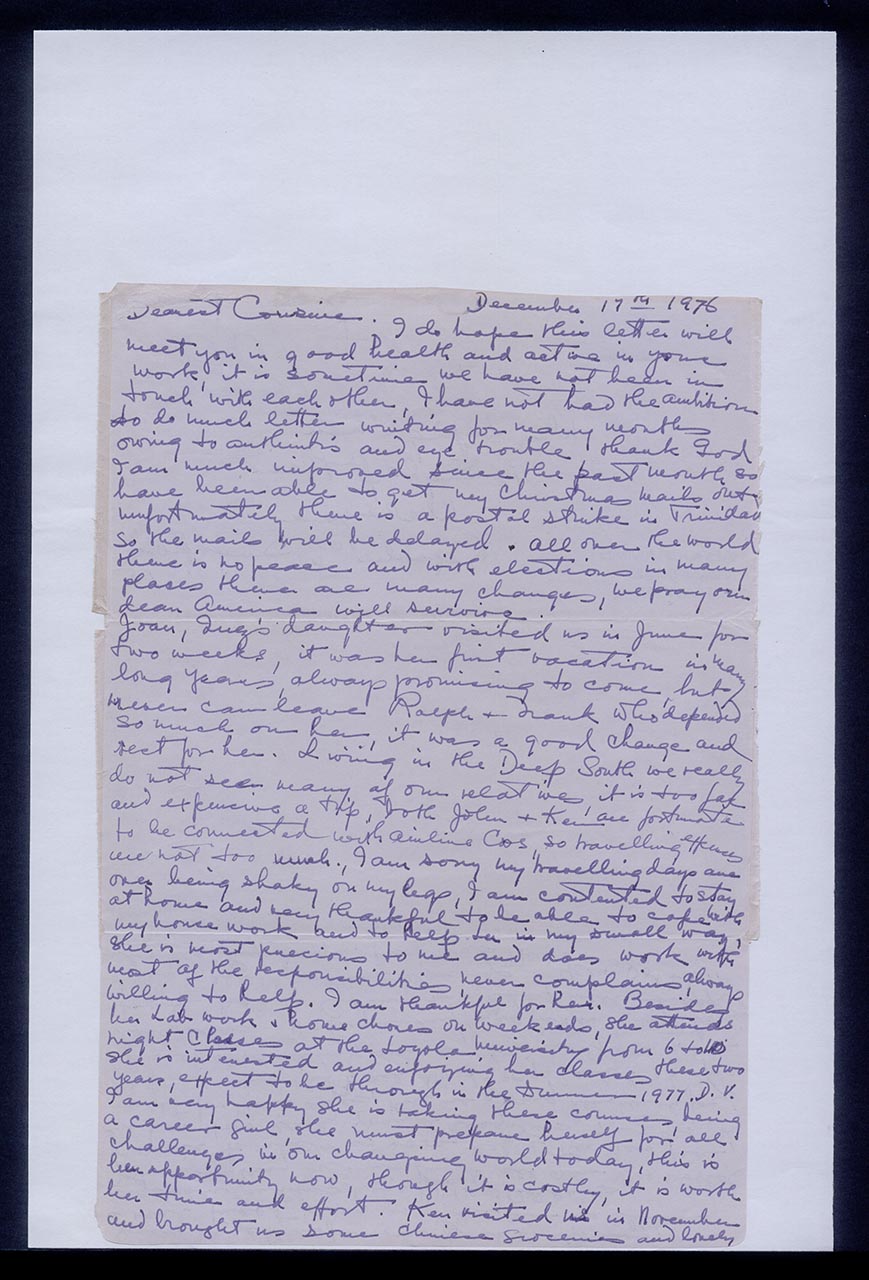 December 17th 1976
Dearest Cousins. I do hope this letter will
meet you in good health and active in your
work, it is sometime we have not been in
touch with each other, I have not had the ambition
to do much letter writing for many months
owing to arthritis and eye trouble, thank God
I am much improved since the past month so
have been able to get my Christmas mails out
unfortunately there is a postal strike in Trinidad
so the mails will be delayed. All over the world
there is no peace and with elections in many
places there are many changes, we pray our
dear America will survive.
Joan, Inez's daughter visited us in June for
two weeks, it was her first vacation in many
long years, always promising to come, but
never can leave Ralph + Frank who depended
so much on her, it was a good change and
rest for her. Living in the Deep South we really
do not see many of our relatives, it is too far
and expensive a trip, both John + Ken are fortunate
to be connected with airline Cos, so travelling expenses
are not too much. I am sorry my travelling days are
over being shaky on my legs, I am contented to stay
at home and very thankful to be able to cope with
my house work and to help in my small way,
she is most precious to me and does work with
most of the responsibilities, never complains, always
willing to help. I am thankful for her. Besides
her Lab work + home chores on weekends, she attends
night Classes at the Loyola University from 6 to 10
she is interested and enjoying her classes these two
years, expect to be through in the Summer 1977. D.V.
I am very happy she is taking these courses, being
a career girl, she must prepare herself for all
challenges in our changing world today, this is
her opportunity now, though it is costly, it is worth
her time and effort. Ken visited us in November
and brought us some chinese groceries and lovely